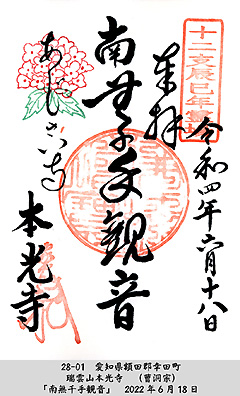 十二支辰巳年霊場
奉拝
令和四年六月十八日
南無千手観音
あじさい寺
本光寺
28-01 愛知県額田郡幸田町
瑞雲山本光寺 (曹洞宗)
「南無千手観音」 2022年6月18日